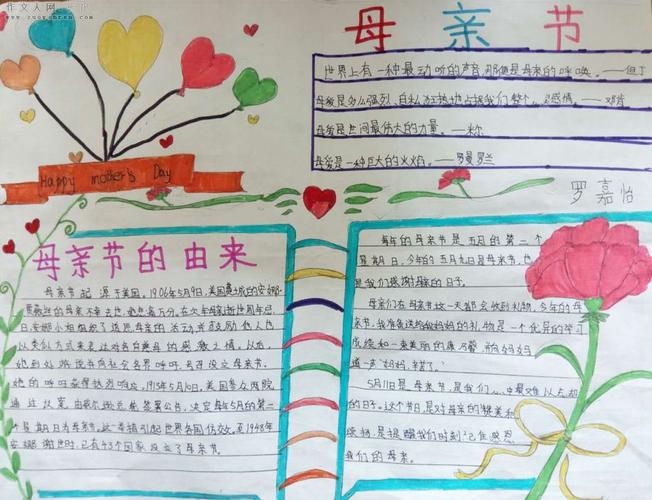 作文人网
母亲节
世界上有一种最动听的声音,那便是母亲的呼唤。——但丁
母爱是多么强烈、自私、狂热地占据我们整个心灵的感情。——邓肯
母爱是世间最伟大的力量。——米尔
母爱是一种巨大的火焰。——罗曼罗兰
Happy mother's Day
罗嘉怡
母亲节的由来
母亲节起源于美国。1906年5月9日,美国费城的安娜
的母亲不幸去世,她悲痛万分。在次年母亲逝世周年忌
日,安娜小姐组织了追思母亲的活动,并鼓励他人也
以类似方式来表达对各自慈母的感激之情。从后,
她到处游说并向社会各界呼吁,号召设立母亲节。
她的呼吁获得热烈响应。1913年5月10日,美国参众两院
通过议案,由威尔逊总统签署公书,决定每年5月的第二
个星期日为母亲节。这一举措引起世界各国仿效。至1948年
安娜谢世时,已有43个国家设立了母亲节。
每年的母亲节是五月的第二个
星期日,今年的五月九日是母亲节,也
是我们感谢母亲的日子。
母亲们在母亲节这一天都会收到礼物,今年的母
亲节,我准备送给我妈妈的礼物是一个优异的学习
成绩和一束美丽的康乃馨,向妈妈
道一声“妈妈,辛苦了。”
5月11日是母亲节,是我们中最难以忘却
的日子。这个节日是对母亲的赞美和
颂扬,是提醒我们时刻记住感恩
我们的母亲。